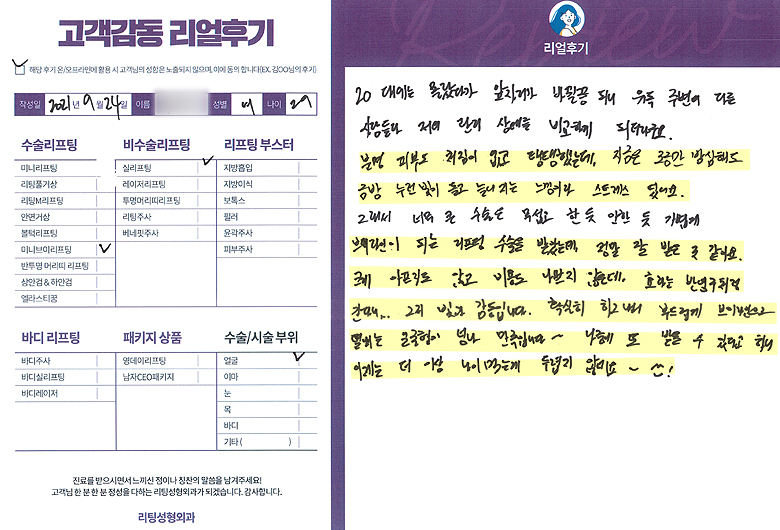 고객감동 리얼후기
해당 후기 온/오프라인에 활용 시 고객님의 성함은 노출되지 않으며, 이에 동의 합니다(EX. 김OO님의 후기)
작성일 2021년 9월 24일 이름 성별 여 나이 29
수술리프팅
미니리프팅
리팅풀거상
리팅M리프팅
안면거상
볼턱리프팅
미니브이리프팅
반투명 머리띠 리프팅
상안검 & 하안검
엘라스티꿈
비수술리프팅
실리프팅
레이저리프팅
투명머리띠리프팅
리팅주사
베네핏주사
리프팅 부스터
지방흡입
지방이식
보톡스
필러
윤곽주사
피부주사
바디 리프팅
바디주사
바디실리프팅
바디레이저
패키지 상품
영데이리프팅
남자CEO패키지
수술/시술 부위
얼굴
이마
눈
목
바디
기타 ( )
진료를 받으시면서 느끼신 점이나 칭찬의 말씀을 남겨주세요!
고객님 한 분 한 분 정성을 다하는 리팅성형외과가 되겠습니다. 감사합니다.
리팅성형외과
Review
리얼후기
20대에는 몰랐다가 앞자리가 바뀔쯤 되니 유독 주변에 다른
사람들과 저의 관리 상태를 비교하게 되더라구요.
분명 피부도 처짐이 없고 탱탱했는데, 지금은 조금만 방심해도
금방 누런빛이 돌고 늘어지는 느낌이라 스트레스 였어요.
그래서 너무 큰 수술은 무섭고 한 듯 안한 듯 가볍게
브이라인이 되는 리프팅 수술을 받았는데, 정말 잘 받은 것 같아요.
크게 아프지도 않고 비용도 나쁘지 않은데, 효과는 반영구적
간다니,, 그저 빛과 감동입니다. 확실히 하고 나서 부드럽게 브이라인으로
떨어지는 얼굴형이 넘나 만족입니다~ 나중에 또 받을 수 있다고 하니
이제는 더 이상 나이먹는게 두렵지 않네요~ ^^!